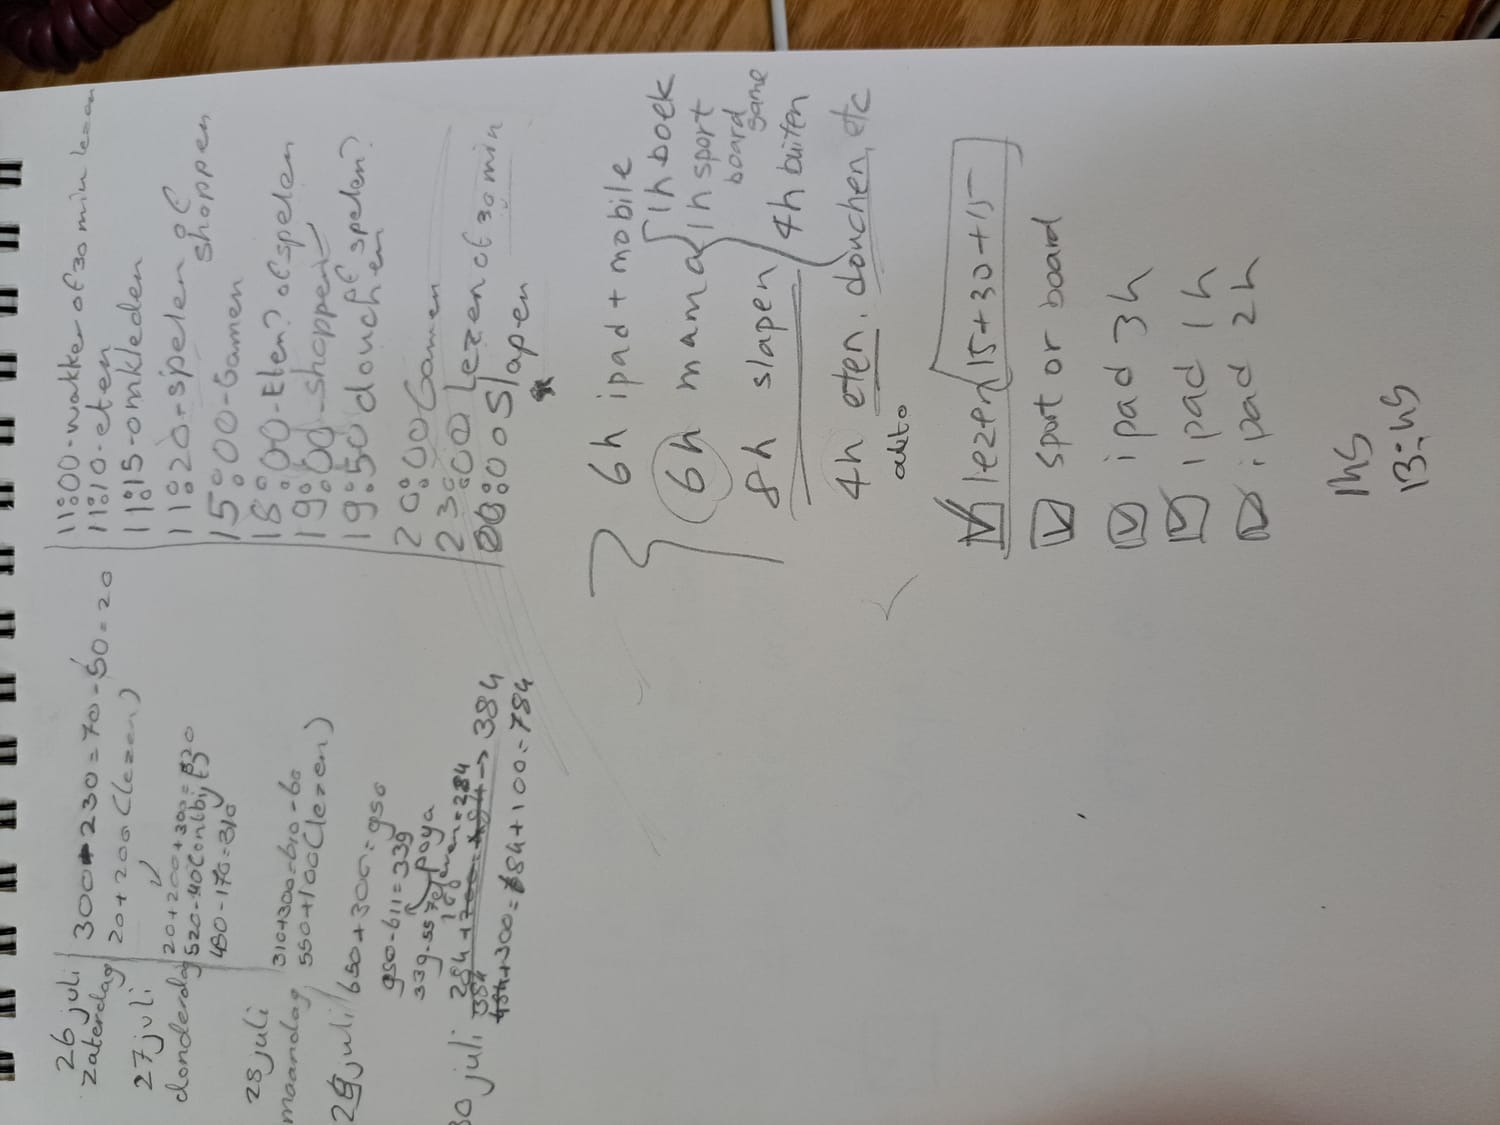 26 juli
zaterdag
300-230=70-50=20
20+200(lezen)
27 juli
donderdag
20+200+300=520
520-40(ontbijt)
480-170=310
28 juli
maandag
310+300=610-60
550+100(lezen)
29 juli
650+300=950
950-611=339
339-55
284
384
30 juli
384+100=784
11:00-wakker of 30 min lezen
11:10-eten
11:15-omkleden
11:20-spelen of
shoppen
15:00-Gamen
18:00-Eten? of spelen
19:00-shoppen
19:50 douchen of spelen?
20:00 Gamen
23:00 Lezen of 30 min
00:00 Slapen
6h ipad + mobile
6h mama
1h boek
1h sport
board
game
4h buiten
8h slapen
4h eten, douchen, etc
auto
lezen 15+30+15
sport or board
ipad 3h
ipad 1h
ipad 2h